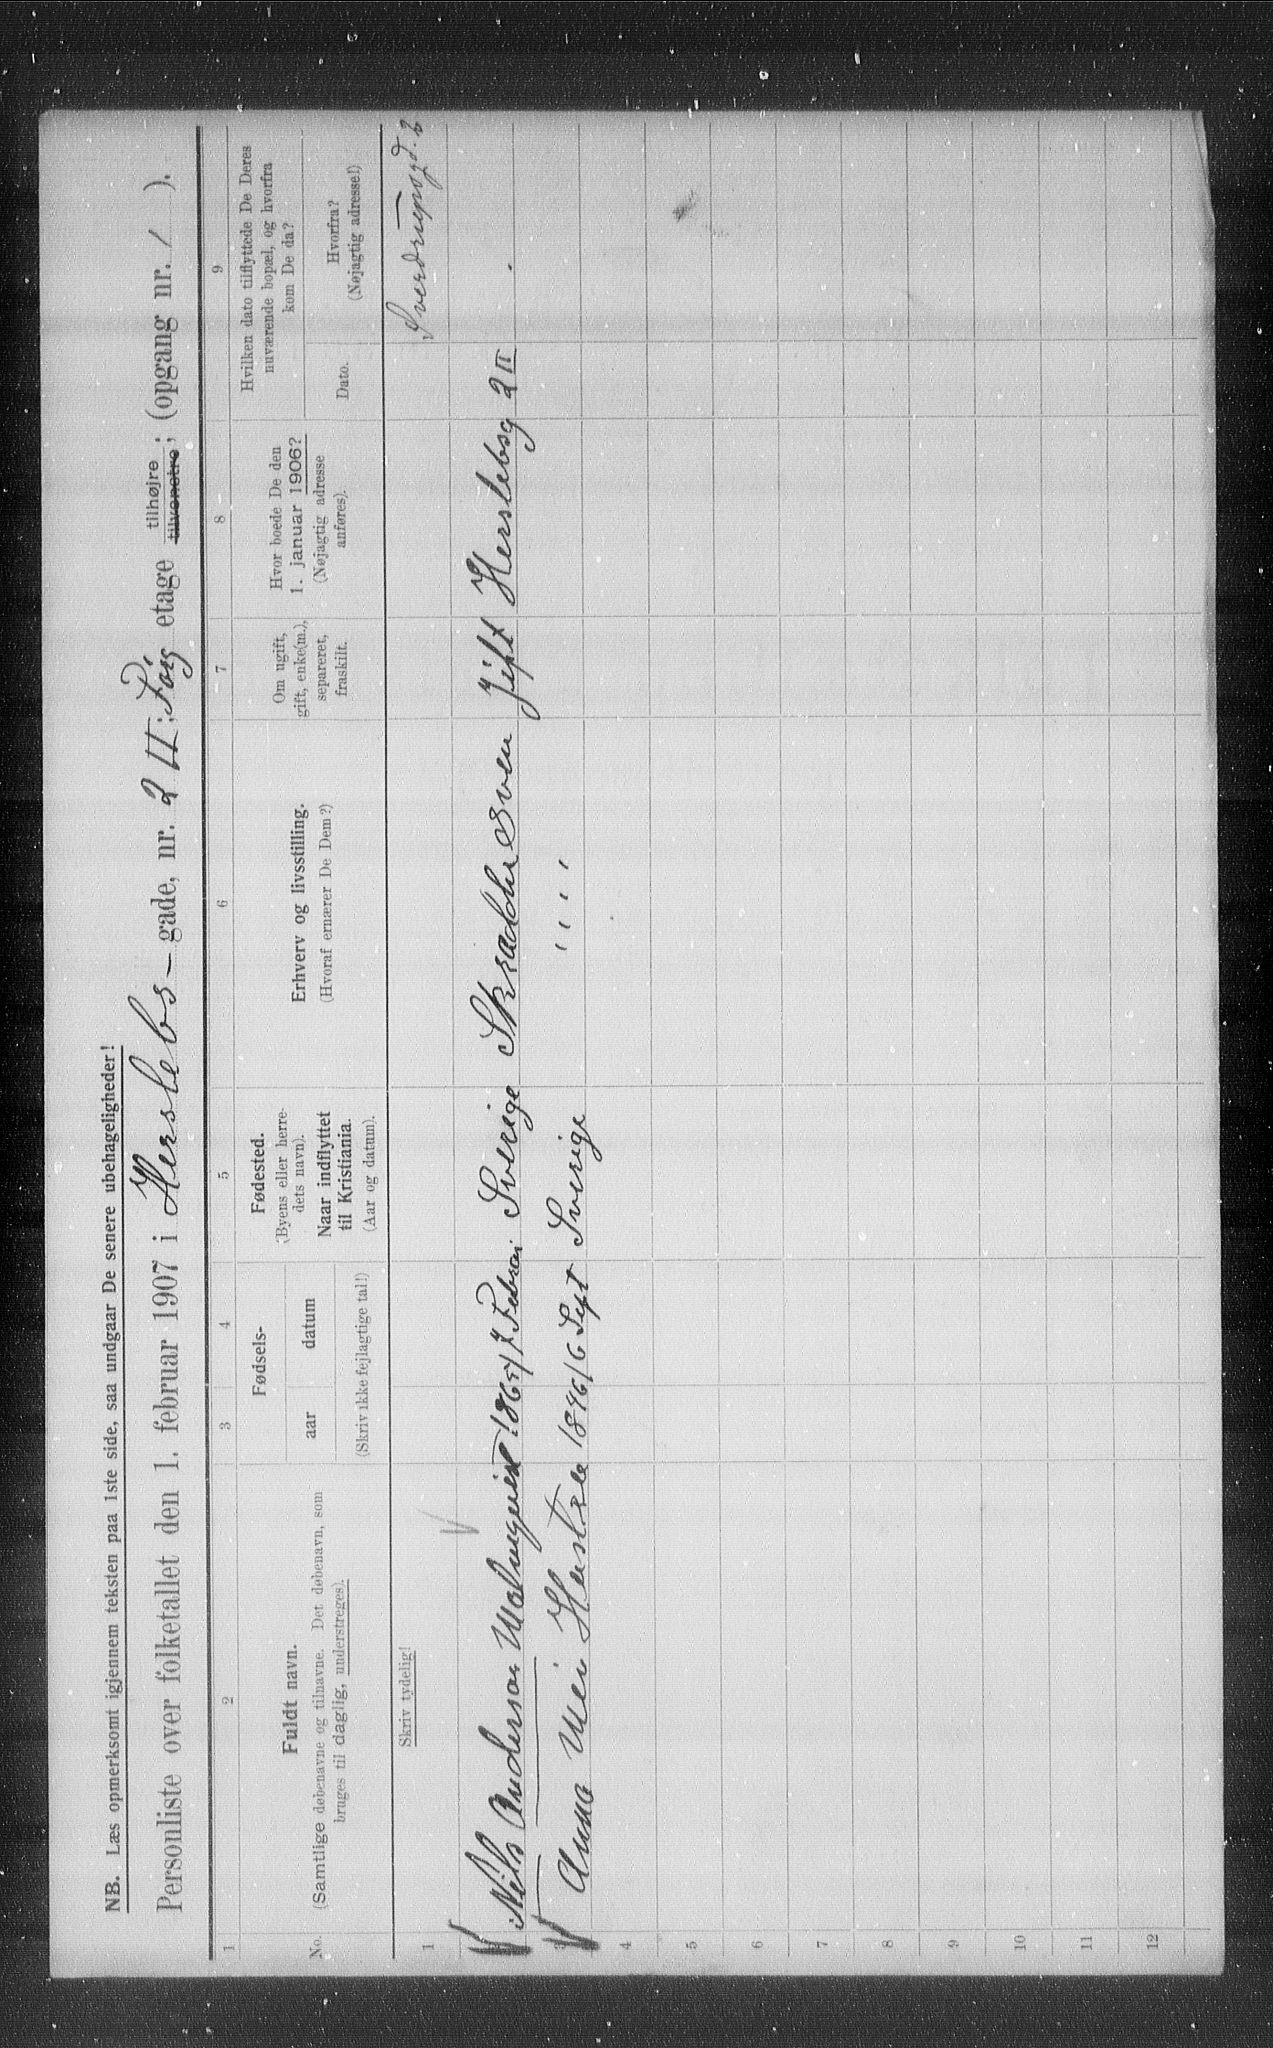 NB. Læs opmerksomt igjennem teksten paa 1ste side, saa undgaar De senere ubehageligheder!
Personliste over folketallet den 1. februar 1907 i Herslebs - gade, nr. 2 II; etage tilhøjre tilvenstre; (opgang nr. 1 ).
1 2 3 4 5 6 7 8 9
No.
Fuldt navn.
(Samtlige døbenavne og tilnavne. Det døbenavn, som
bruges til daglig, understreges).
Fødsels-
aar datum
(Skriv ikke fejlagtige tal!)
Fødested.
(Byens eller herre-
dets navn).
Naar indflyttet
til Kristiania.
(Aar og datum).
Erhverv og livsstilling.
(Hvoraf ernærer De Dem?)
Om ugift,
gift, enke(m.),
separeret,
fraskilt.
Hvor boede De den
1. januar 1906?
(Nøjagtig adresse
anføres).
Hvilken dato tilflyttede De Deres
nuværende bopæl, og hvorfra
kom De da?
Dato.
Hvorfra?
(Nøjagtig adresse!)
Skriv tydelig!
1 Sverdrupsgd. 2
2 Nils Anderson Malmquist 1865 7 Februar Sverige Skræddersven Gift Herslebsg 2 II
3 Anna 1846 6 Sept Sverige " " " "
4
5
6
7
8
9
10
11
12